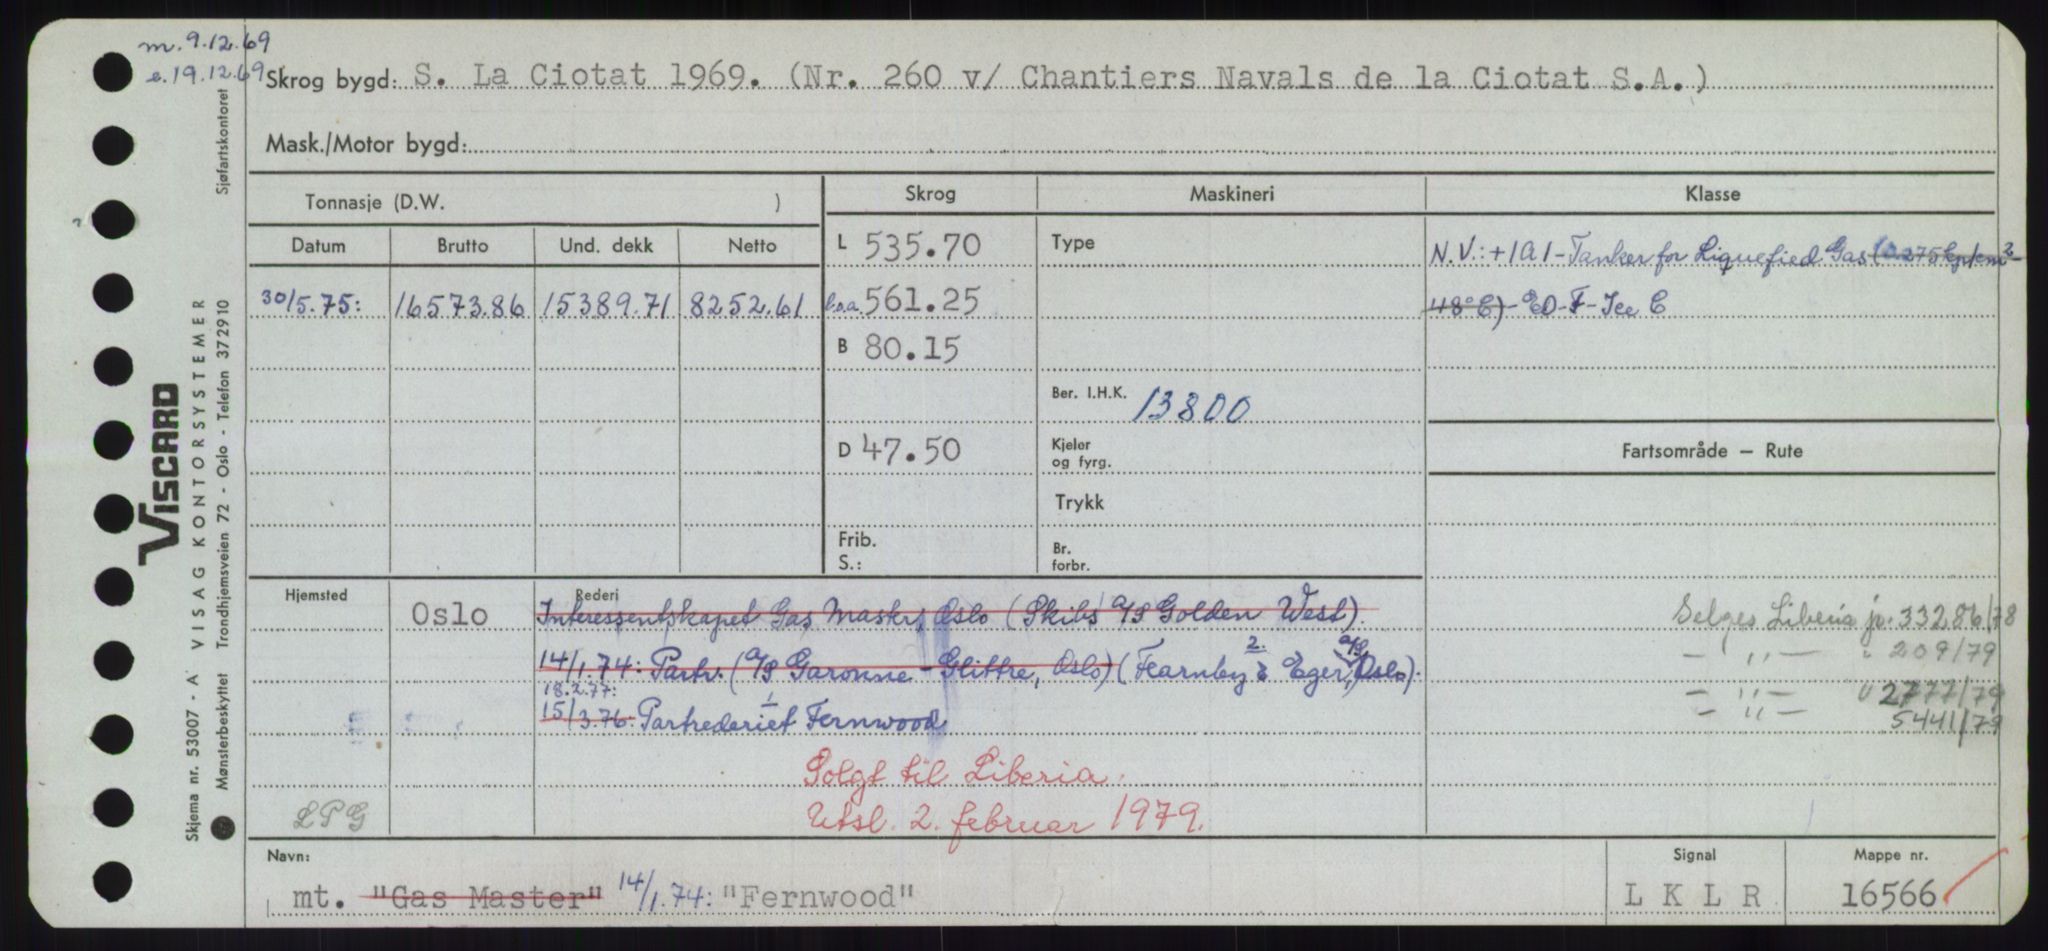 m. 9.12.69
e. 19.12.69
Skrog bygd: S. La Ciotat 1969. (Nr. 260 v/ Chantiers Navals de la Ciotat S.A.)
Mask./Motor bygd:
Tonnasje (D.W. )
Skrog
Maskineri
Klasse
Datum Brutto Und. dekk Netto
30/5.75: 16573.86 15389.71 8252.61
L 535.70
l.o.a. 561.25
B 80.15
D 47.50
Frib.
S.:
Type
Ber. I.H.K. 13800
Kjeler
og fyrg.
Trykk
Br.
forbr.
N.V.: +1A1-Tanker for Liquefied Gas (0.275kp/cm2-
48°C)-EO-F-Ice C
Fartsområde — Rute
Selges Liberia jr. 33286/78
— " — " 209/79
— " — " 2777/79
— " — 5441/79
Hjemsted
Oslo
LPG
Rederi
Interessentskapet Gas Master, Oslo (Skibs A/S Golden West).
14/1.74: Partr. (A/S Garonne-Glittre, Oslo) (Fearnley & Eger, A/S, Oslo).
2.
18.2.77:
15/3.76: Partrederiet Fernwood
Solgt til Liberia.
Utsl. 2. februar 1979.
Navn:
mt. "Gas Master" 14/1.74: "Fernwood"
Signal
LKLR
Mappe nr.
16566
Sjøfartskontoret
VISCARD
VISAG KONTORSYSTEMER
Trondhjemsveien 72 - Oslo - Telefon 372910
Skjema nr. 53007 - A
Mønsterbeskyttet